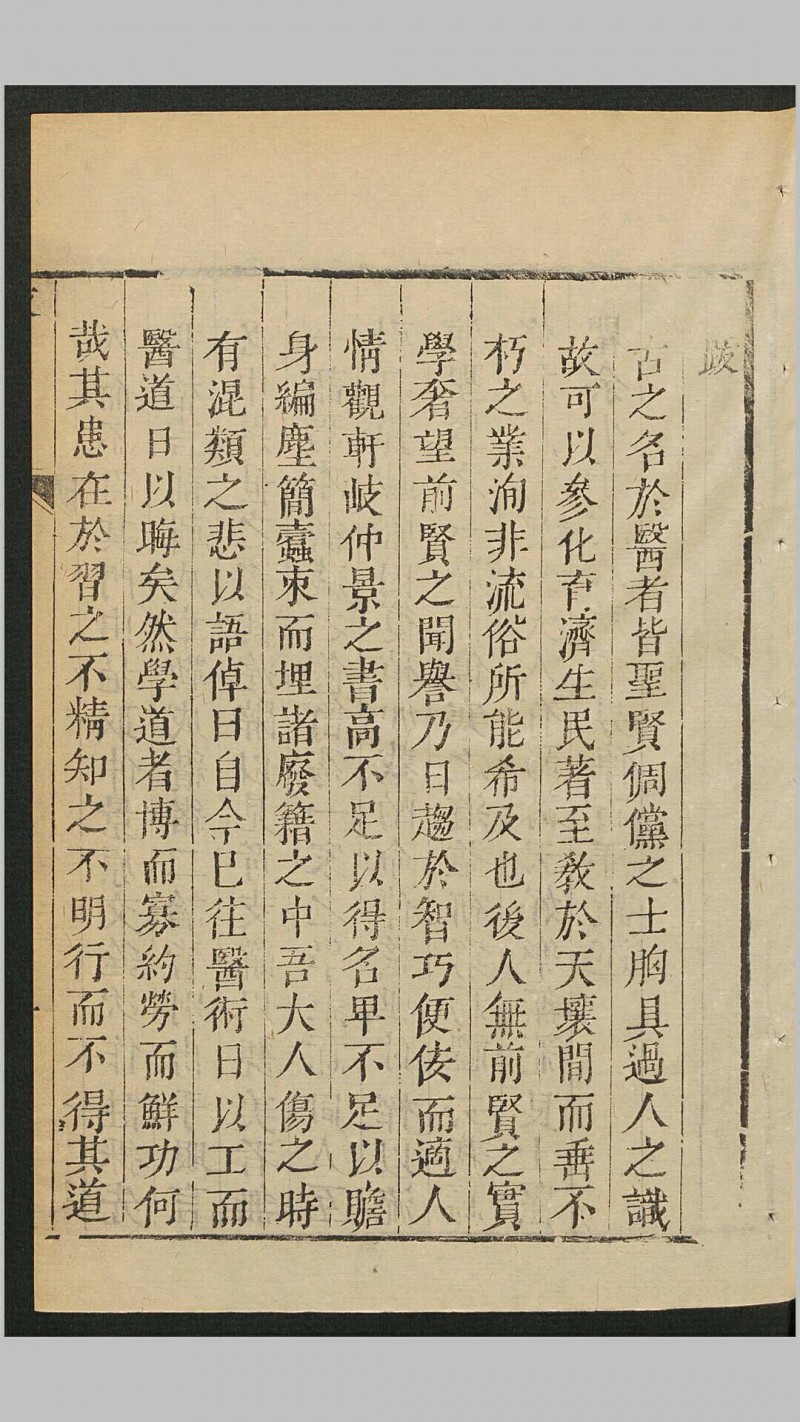 跋
古之名於醫者皆聖賢倜儻之士胸具過人之識
故可以參化育濟生民著至教於天壤間而垂不
朽之業洵非流俗所能希及也後人無前賢之實
學奢望前賢之聞譽乃日趨於智巧便佞而適人
情觀軒岐仲景之書高不足以得名卑不足以贍
身編塵簡蠹束而埋諸廢籍之中吾大人傷之時
有混類之悲以語倬曰自今已往醫術日以工而
醫道日以晦矣然學道者博而寡約勞而鮮功何
哉其患在於習之不精知之不明行而不得其道